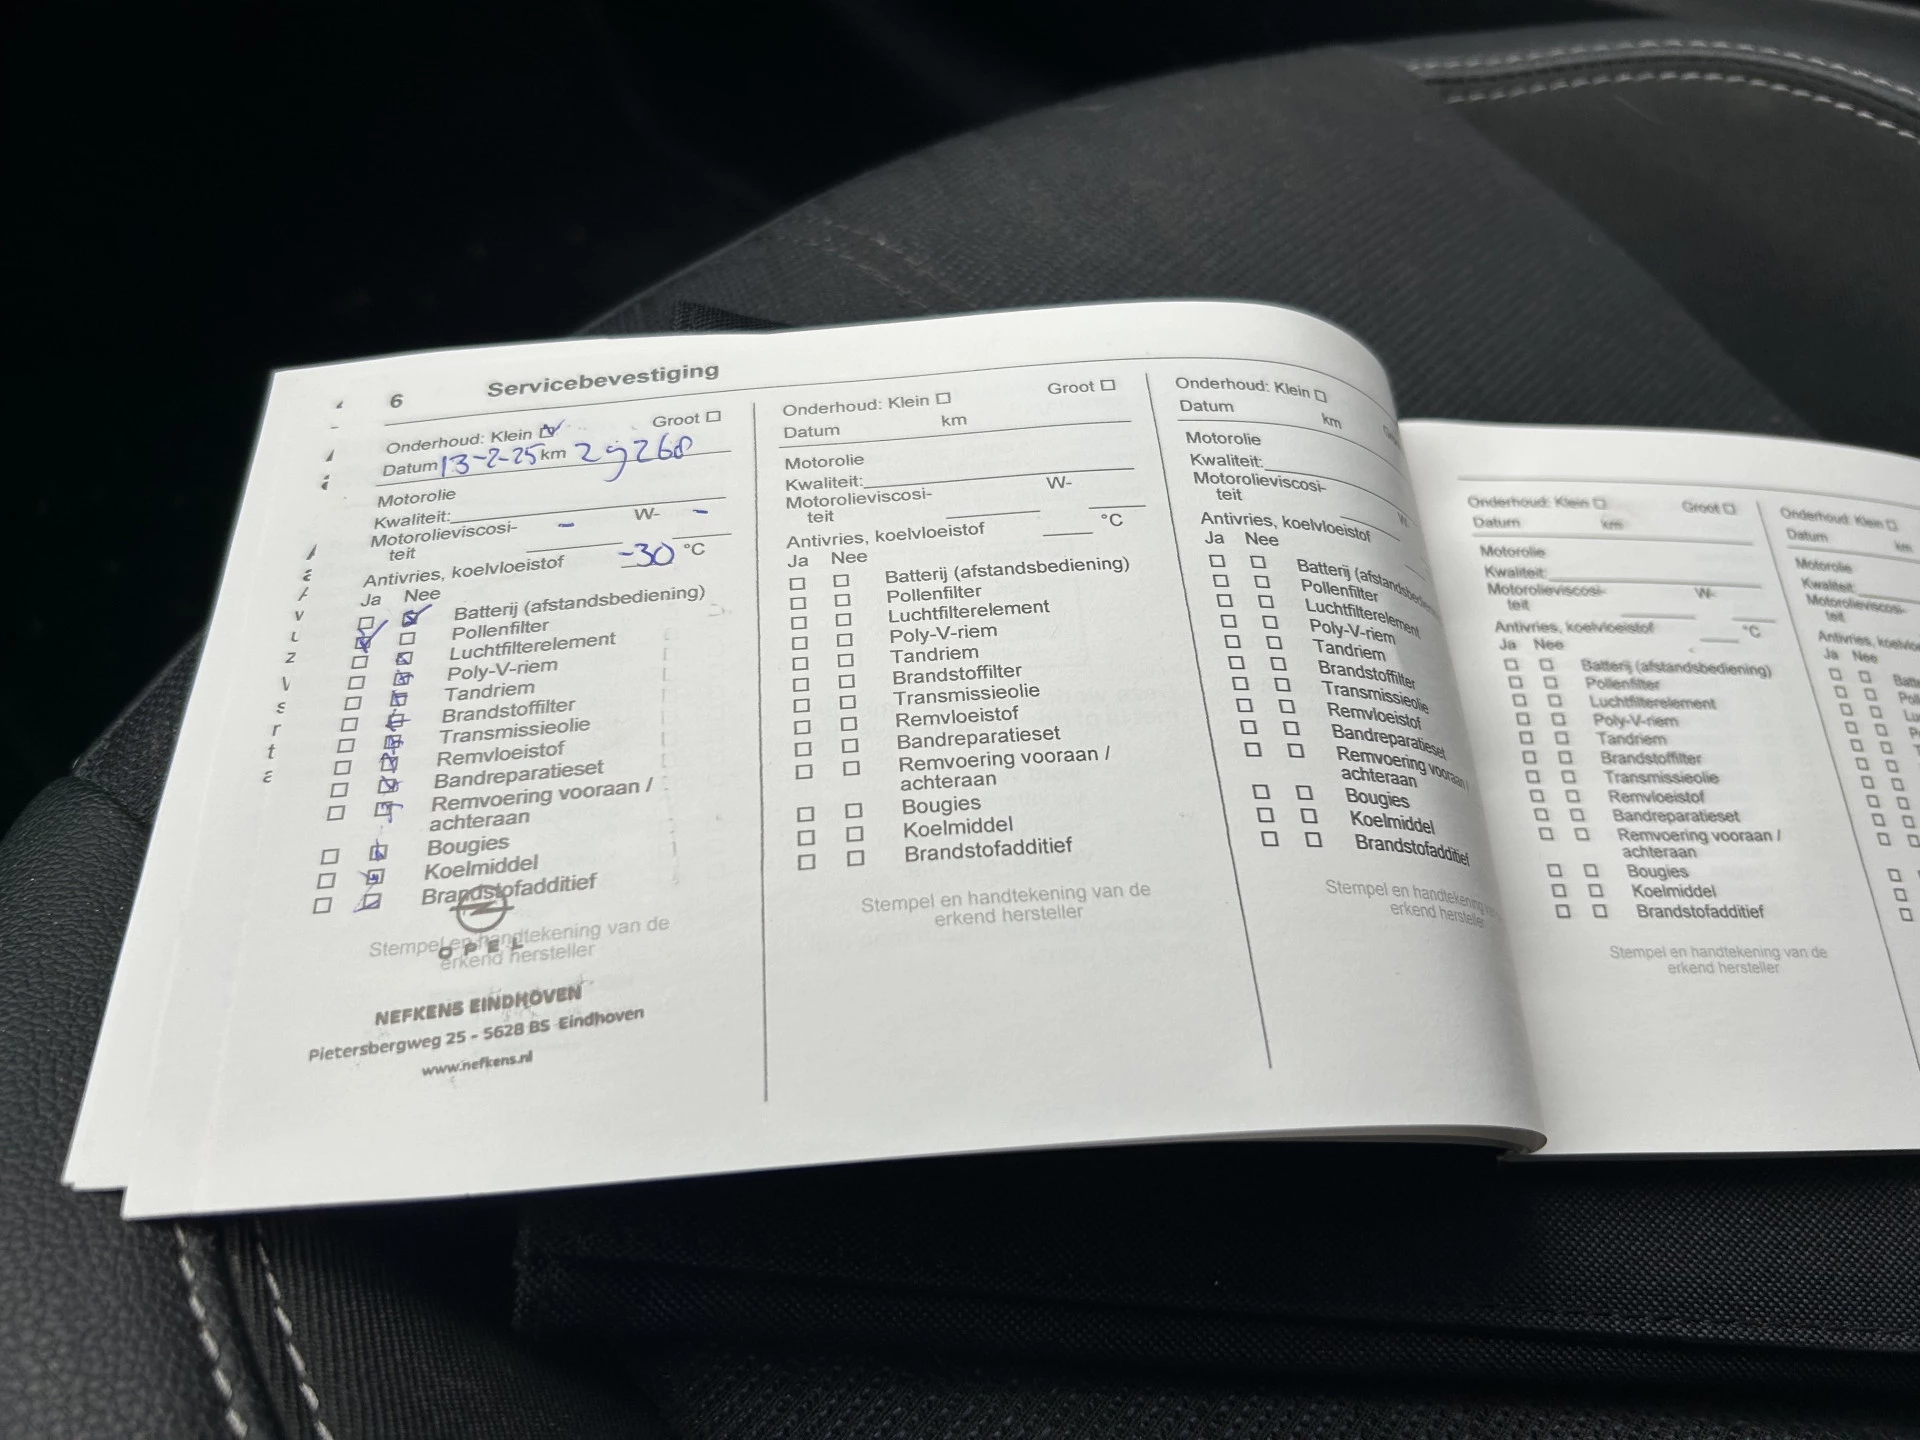 6 Servicebevestiging
Onderhoud: Klein Groot
Datum 13-2-25 km 29268
Motorolie
Kwaliteit:
Motorolieviscosi- - W- -
teit
Antivries, koelvloeistof -30 °C
Ja Nee
Batterij (afstandsbediening)
Pollenfilter
Luchtfilterelement
Poly-V-riem
Tandriem
Brandstoffilter
Transmissieolie
Remvloeistof
Bandreparatieset
Remvoering vooraan /
achteraan
Bougies
Koelmiddel
Brandstofadditief
Stempel en handtekening van de
erkend hersteller
OPEL
NEFKENS EINDHOVEN
Pietersbergweg 25 - 5628 BS Eindhoven
www.nefkens.nl
Onderhoud: Klein Groot
Datum km
Motorolie
Kwaliteit:
Motorolieviscosi- W-
teit
Antivries, koelvloeistof °C
Ja Nee
Batterij (afstandsbediening)
Pollenfilter
Luchtfilterelement
Poly-V-riem
Tandriem
Brandstoffilter
Transmissieolie
Remvloeistof
Bandreparatieset
Remvoering vooraan /
achteraan
Bougies
Koelmiddel
Brandstofadditief
Stempel en handtekening van de
erkend hersteller
Onderhoud: Klein
Datum km
Motorolie
Kwaliteit:
Motorolieviscosi-
teit W
Antivries, koelvloeistof
Ja Nee
Batterij (afstandsbediening)
Pollenfilter
Luchtfilterelement
Poly-V-riem
Tandriem
Brandstoffilter
Transmissieolie
Remvloeistof
Bandreparatieset
Remvoering vooraan /
achteraan
Bougies
Koelmiddel
Brandstofadditief
Stempel en handtekening
erkend hersteller
Onderhoud: Klein Groot
Datum km
Motorolie
Kwaliteit:
Motorolieviscosi- W-
teit
Antivries, koelvloeistof °C
Ja Nee
Batterij (afstandsbediening)
Pollenfilter
Luchtfilterelement
Poly-V-riem
Tandriem
Brandstoffilter
Transmissieolie
Remvloeistof
Bandreparatieset
Remvoering vooraan /
achteraan
Bougies
Koelmiddel
Brandstofadditief
Stempel en handtekening van de
erkend hersteller
Onderhoud: Klein
Datum km
Motorolie
Kwaliteit:
Motorolieviscosi-
teit
Antivries,
Ja Nee